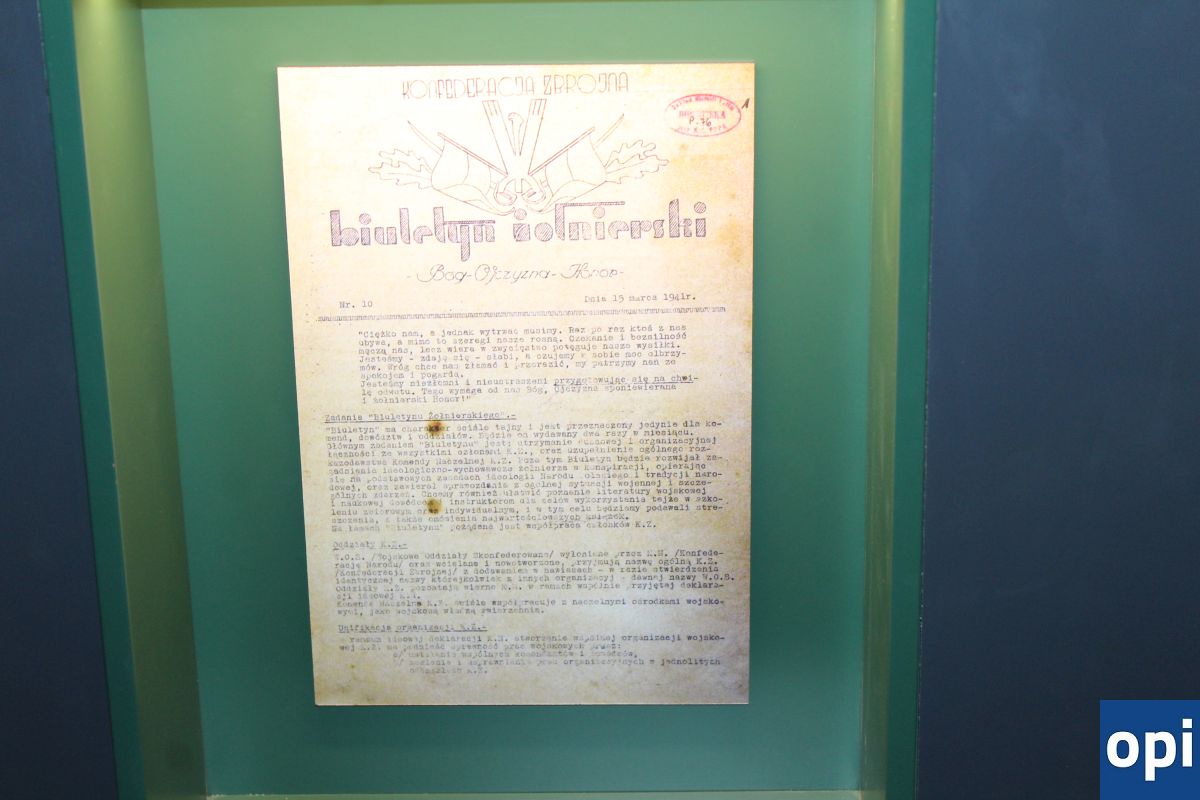 KONFEDERACJA ZBROJNA
P. 76
biuletyn żołnierski
- Bóg - Ojczyzna - Honor -
Nr. 10
Dnia 15 marca 1941r.
"Ciężko nam, a jednak wytrwać musimy. Raz po raz ktoś z nas
ubywa, a mimo to szeregi nasze rosną. Czekanie i bezsilność
męczą nas, lecz wiara w zwycięstwo potęguje nasze wysiłki.
Jesteśmy - zdaję się - słabi, a czujemy w sobie moc olbrzy-
mów. Wróg chce nas złamać i przerazić, my patrzymy nań ze
spokojem i pogardą.
Jesteśmy niezłomni i nieustraszeni przygotowując się na chwi-
lę odwetu. Tego wymaga od nas Bóg, Ojczyzna sponiewierana
i żołnierski Honor!"
Zadania "Biuletynu Żołnierskiego".-
"Biuletyn" ma charakter ściśle tajny i jest przeznaczony jedynie dla ko-
mend, dowództw i oddziałów. Będzie on wydawany dwa razy w miesiącu.
Głównym zadaniem "Biuletynu" jest: utrzymanie duchowej i organizacyjnej
łączności ze wszystkimi członami K.Z., oraz uzupełnienie ogólnego roz-
kazodawstwa Komendy Naczelnej K.Z. Poza tym Biuletyn będzie rozwijał za-
gadnienia ideologiczno-wychowawcze żołnierza w konspiracji, opierając
się na podstawowych zasadach ideologii Narodu Polskiego i tradycji naro-
dowej, oraz zawierał sprawozdania z ogólnej sytuacji wojennej i szcze-
gólnych zdarzeń. Chcemy również ułatwić poznanie literatury wojskowej
i naukowej dowódcom i instruktorom dla celów wykorzystania tejże w szko-
leniu zbiorowym oraz indywidualnym, i w tym celu będziemy podawali stre-
szczenia, a także omówienia najwartościowszych książek.
Na łamach "Biuletynu" pożądana jest współpraca członków K.Z.
Oddziały K.Z.-
W.O.S. /Wojskowe Oddziały Skonfederowane/ wyłonione przez K.N. /Konfede-
rację Narodu/ oraz wcielane i nowotworzone, przyjmują nazwę ogólną K.Z.
/Konfederacji Zbrojnej/ z dodawaniem w nawiasach - w razie stwierdzenia
identycznej nazwy którejkolwiek z innych organizacyj - dawnej nazwy W.O.S.
Oddziały K.Z. pozostają wierne K.N. w ramach wspólnie przyjętej deklara-
cji ideowej K.N.
Komenda Naczelna K.Z. ściśle współpracuje z naczelnymi ośrodkami wojsko-
wymi, jako wojskową władzą zwierzchnią.
Unifikacja organizacji K.Z.-
W ramach ideowej deklaracji K.N. stworzenie wspólnej organizacji wojsko-
wej K.Z. ma podnieść sprawność prac wojskowych przez:
a/ wspólnych komendantów i dowódców,
b/ organizacyjnych w jednolitych
oddziałach K.Z.
opi